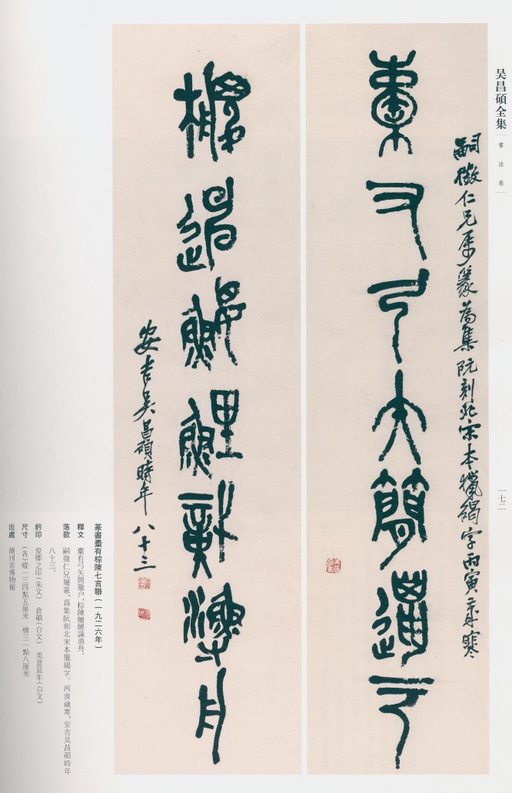 吴昌碩全集 書法卷
一七二
嗣徵仁兄屬篆為集阮刻北宋本獵碣字丙寅歲寒
橐又弓矢簡
鰋鯉漁舟
安吉吴昌碩時年八十三
篆書橐有棕陳七言聯(一九二六年)
釋文 橐有弓矢簡獵户,棕陳鰋鯉識漁舟。
落款 嗣徵仁兄屬篆,爲集阮刻北宋本獵碣字。丙寅歲寒,安吉吴昌碩時年
八十三。
鈐印 俊卿之印(朱文) 倉碩(白文) 美意延年(白文)
尺寸 (各)縱一三四點五厘米 横三一點八厘米
出處 湖州市博物館